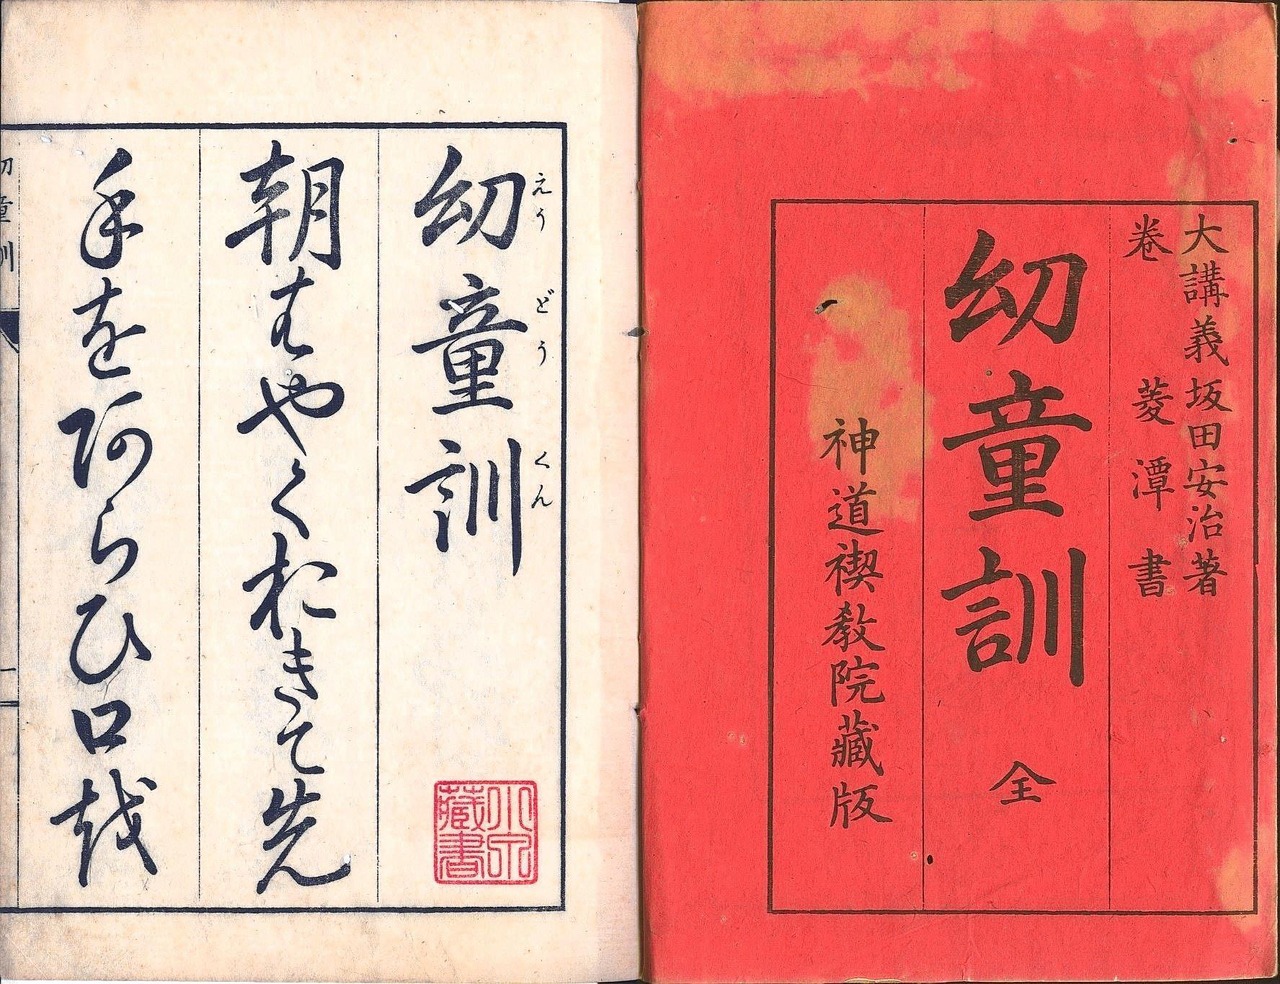 大講義坂田安治著
卷菱潭書
幼童訓 全
神道禊教院藏版
幼童訓
えうどうくん
朝はやくおきて先
手を阿らひ口越
小泉
藏書
幼童訓
一